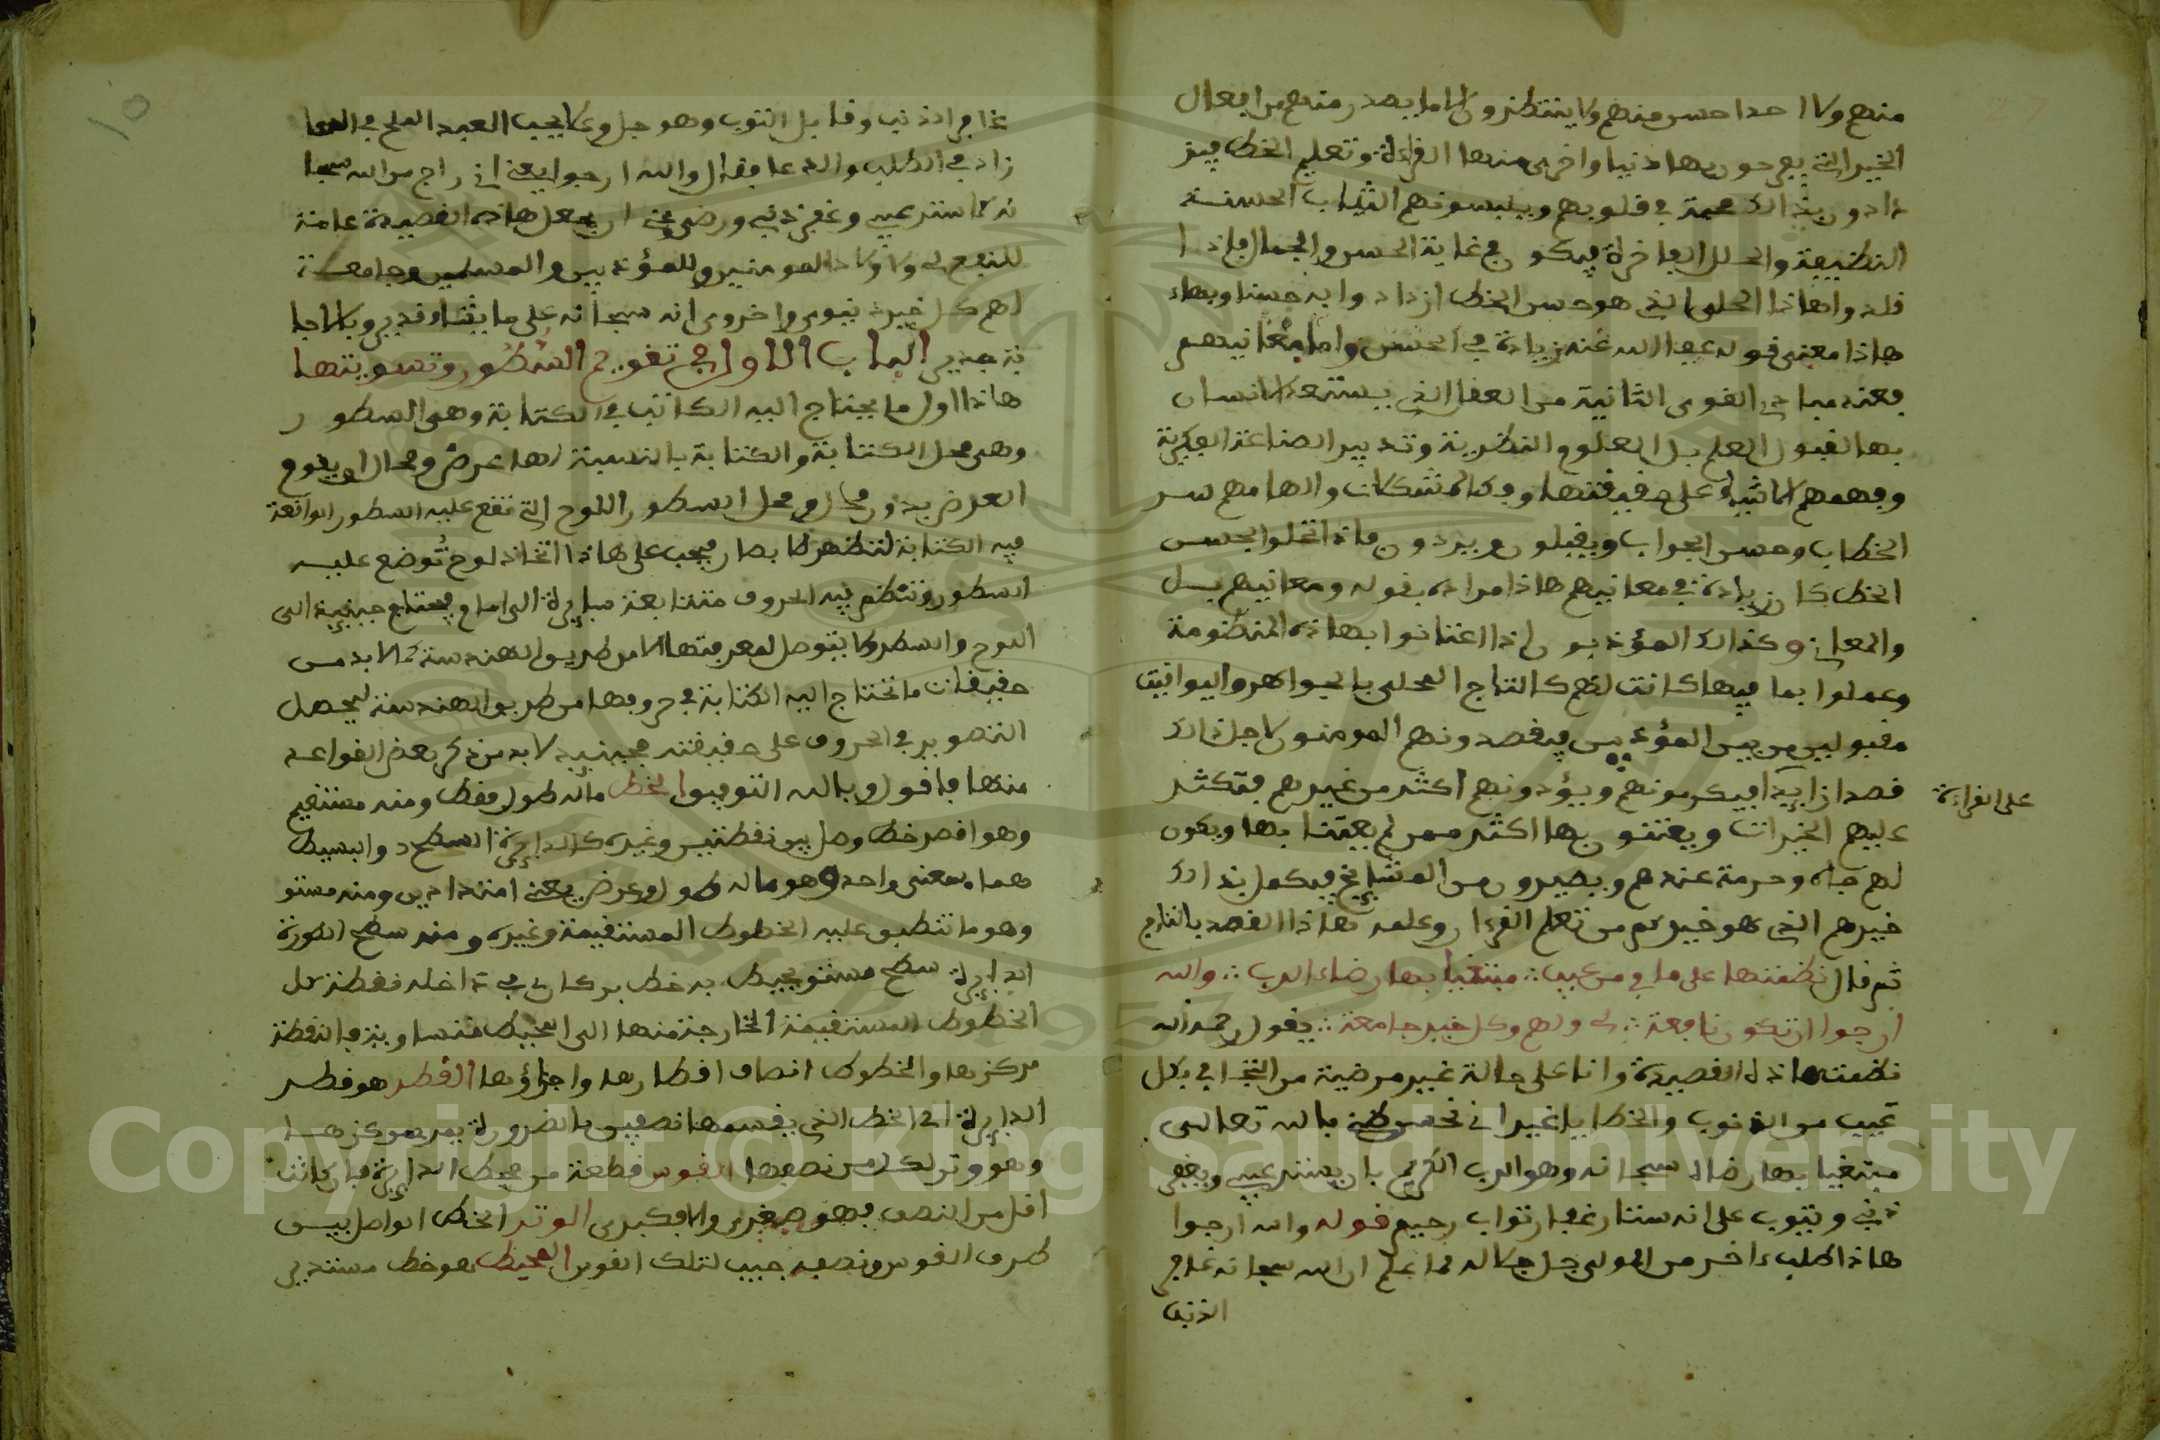 منهم ولا احدا حسن منهم ولا ينتظرون الا ما يصدر منهم من افعال
الخير التي يفرحون بها دنيا واخرى منها القراءة وتعليم الخط فيز
دادون بذالك محبة في قلوبهم ويلبسونهم الثياب الحسنة
النظيفة والحلل الفاخرة فيكون في غاية الحسن والجمال فاذا
قلدوا هاذا الحلي الذي هو حسن الخط ازدادوا به حسنا وبهاء
هاذا معنى قوله عفا الله عنه زيادة في الحسن واما معانيهم
فعنده مبادي القوى الثانية من العقل الذي يستعد الانسان
بها لقبول العلم بل العلوم النظرية وتدبير الصناعة الفكرية
وفهمهم الاشياء على حقيقتها وفك المشكلات والهامهم سر
الخطاب وحسن الجواب ويقبلون ويردون فاذا تحلوا بحسن
الخط كان زيادة في معانيهم هاذا مراده بقوله ومعانيهم بل
والمعاني وكذالك المؤدبون اذا اعتنوا بهاذه المنظومة
وعملوا بما فيها كانت لهم كالتاج المحلى بالجواهر واليواقيت
مقبولين من بين المؤدبين فيقصدونهم المومنون لاجل ذالك
قصدا زايدا فيكرمونهم ويؤدونهم اكثر من غيرهم فتكثر
على القراءة
عليهم الخيرات ويعتنون بها اكثر ممن لم يعتنا بها ويكون
لهم جاه وحرمة عندهم ويصيرون من المشايخ فيكمل بذالك
خيرهم الذي هو خيركم من تعلم القرءان وعلمه هاذا القصد بالتاج
ثم قال نظمتها على ما في من عيب ∴ مبتغيا بها رضاء الرب ∴ والله
ارجوا ان تكون نافعة ∴ لي ولهم وكل خير جامعة ∴ يقول رحمه الله
نظمت هاذه القصيدة وانا على حالة غير مرضية من اتصافي بكل
عيب من الذنوب والخطايا غير اني نحسن ظني بالله تعالى
مبتغيا بها رضاه سبحانه وهو الرب الكريم بان يستر عيبي ويغفر
ذنبي ويتوب علي انه ستار غفار تواب رحيم قوله والله ارجوا
هاذا طلب ءاخر من المولى جل جلاله لما علم ان الله سبحانه غافر
الذنب
غافر الذنب وقابل التوب وهو جل وعلا يحب العبد الملح في الدعا
زاد في الطلب والدعا فقال والله ارجوا يعني اني راج من الله سبحا
نه كما ستر عيبي وغفر ذنبي ورضي عني ان يجعل هاذه القصيدة عامة
للنفع لي ولاولاد المومنين وللمؤدبين والمسلمين وجامعة
لهم كل خير دنيوي واخروي انه سبحانه على ما يشاء قدير وبالاجا
بة جدير الباب الاول في تقويم السطور وتسويتها
هاذا اول ما يحتاج اليه الكاتب في الكتابة وهي السطور
وهي محل الكتابة والكتابة بالنسبة لها عرض ومحال ان يقوم
العرض بدون محل ومحل السطور اللوح التي تقع عليه السطور الواقعة
فيه الكتابة لتظهر للابصار فيجب على هاذا اتخاذ لوح توضع عليه
السطور وتنتظم فيه الحروف متتابعة سايرة الى امام فيحتاج حينئذ الى
اللوح والسطر ولا يتوصل لمعرفتها الا من طريق الهندسة كما لا بد من
حقيقات ما تحتاج اليه الكتابة في حروفها من طريق الهندسة ليحصل
التصوير في الحروف على حقيقته فحينئذ لا بد من ذكر بعض القواعد
منها فاقول وبالله التوفيق الخط ماله طول فقط ومنه مستقيم
وهو اقصر خط وصل بين نقطتين وغيره كالدايرة السطح والبسيط
هما بمعنى واحد وهو ماله طول وعرض يعني امتدادين ومنه مستو
وهو ما تنطبق عليه الخطوط المستقيمة وغيره ومنه سطح الكورة
الدايرة سطح مستو يحيط به خط بركار في داخله نقطة كل
الخطوط المستقيمة الخارجة منها الى المحيط متساوية فالنقطة
مركزها والخطوط انصاف اقطارها واجزاؤها القطر هو قطر
الدايرة اي الخط الذي يقسمها نصفين بالضرورة يمر بمركزها
وهو وتر لكل من نصفيها القوس قطعة من محيط الدايرة فان كانت
اقل من النصف فهو صغرى والا فكبرى الوتر الخط الواصل بين
طرف القوس ونصفه جيب لتلك القوس المحيط هو خط مستدير